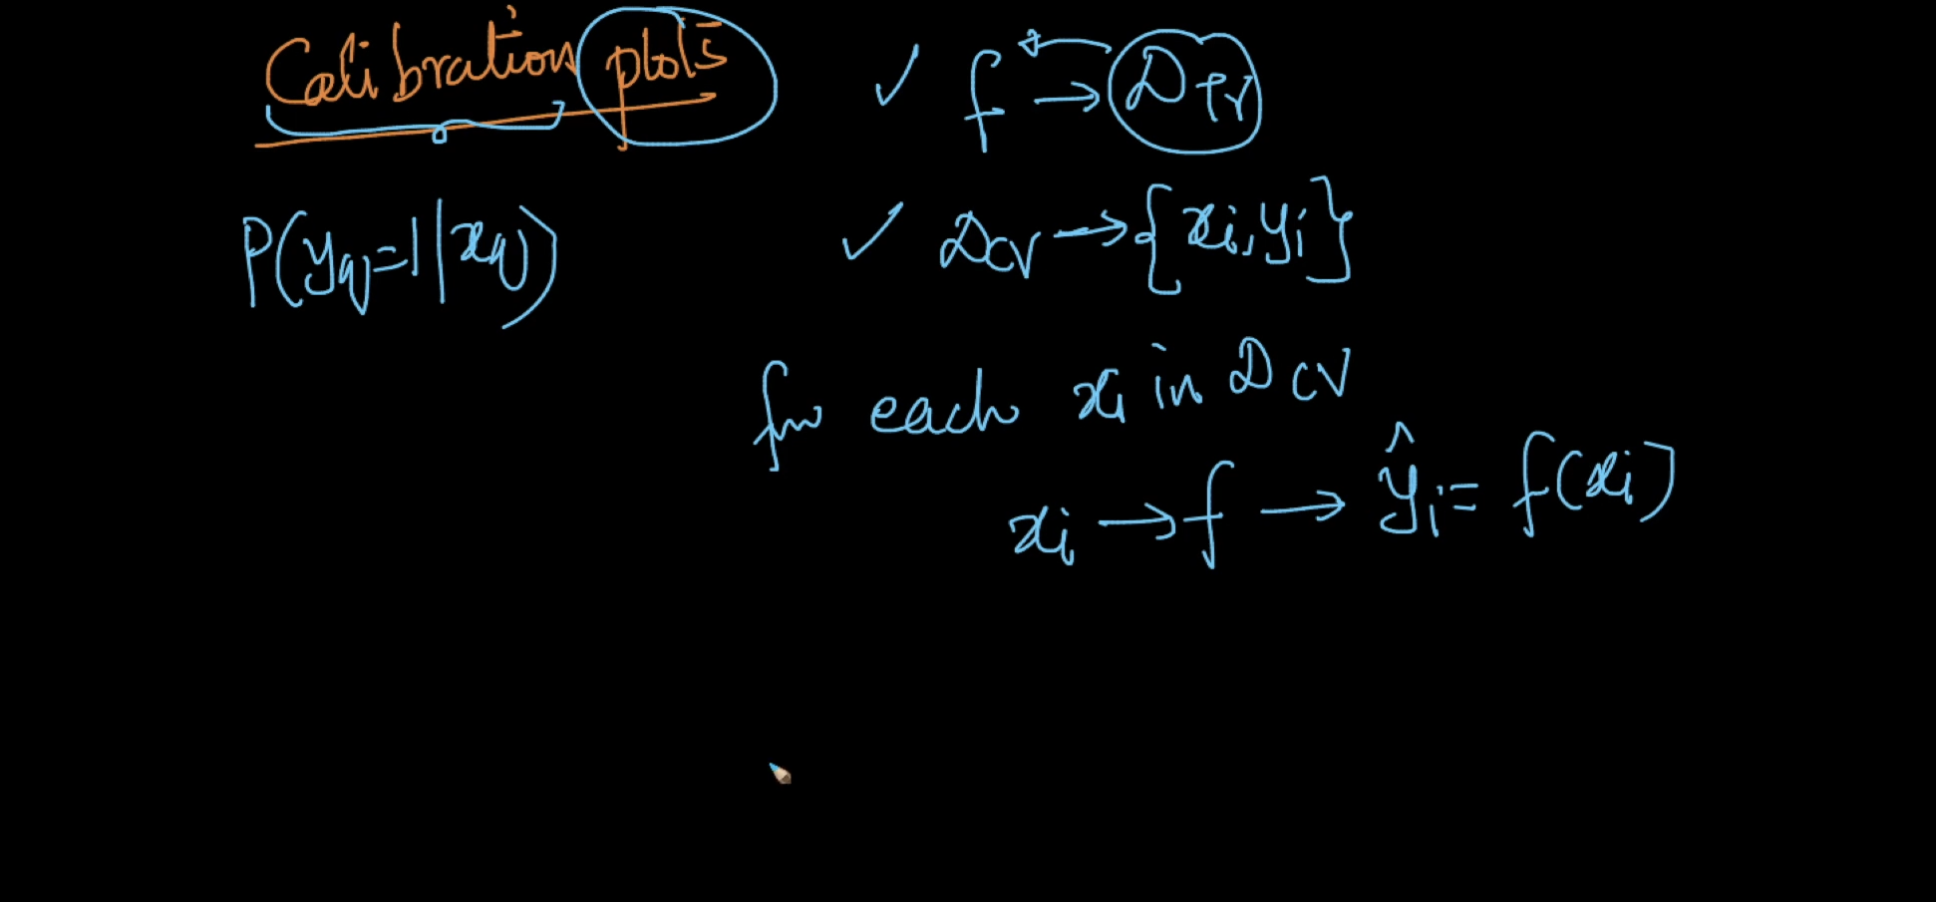 Calibration plots
✓ f → D_Tr
P(y_q=1|x_q)
✓ D_CV → {x_i, y_i}
for each x_i in D_CV
x_i → f → ŷ_i = f(x_i)